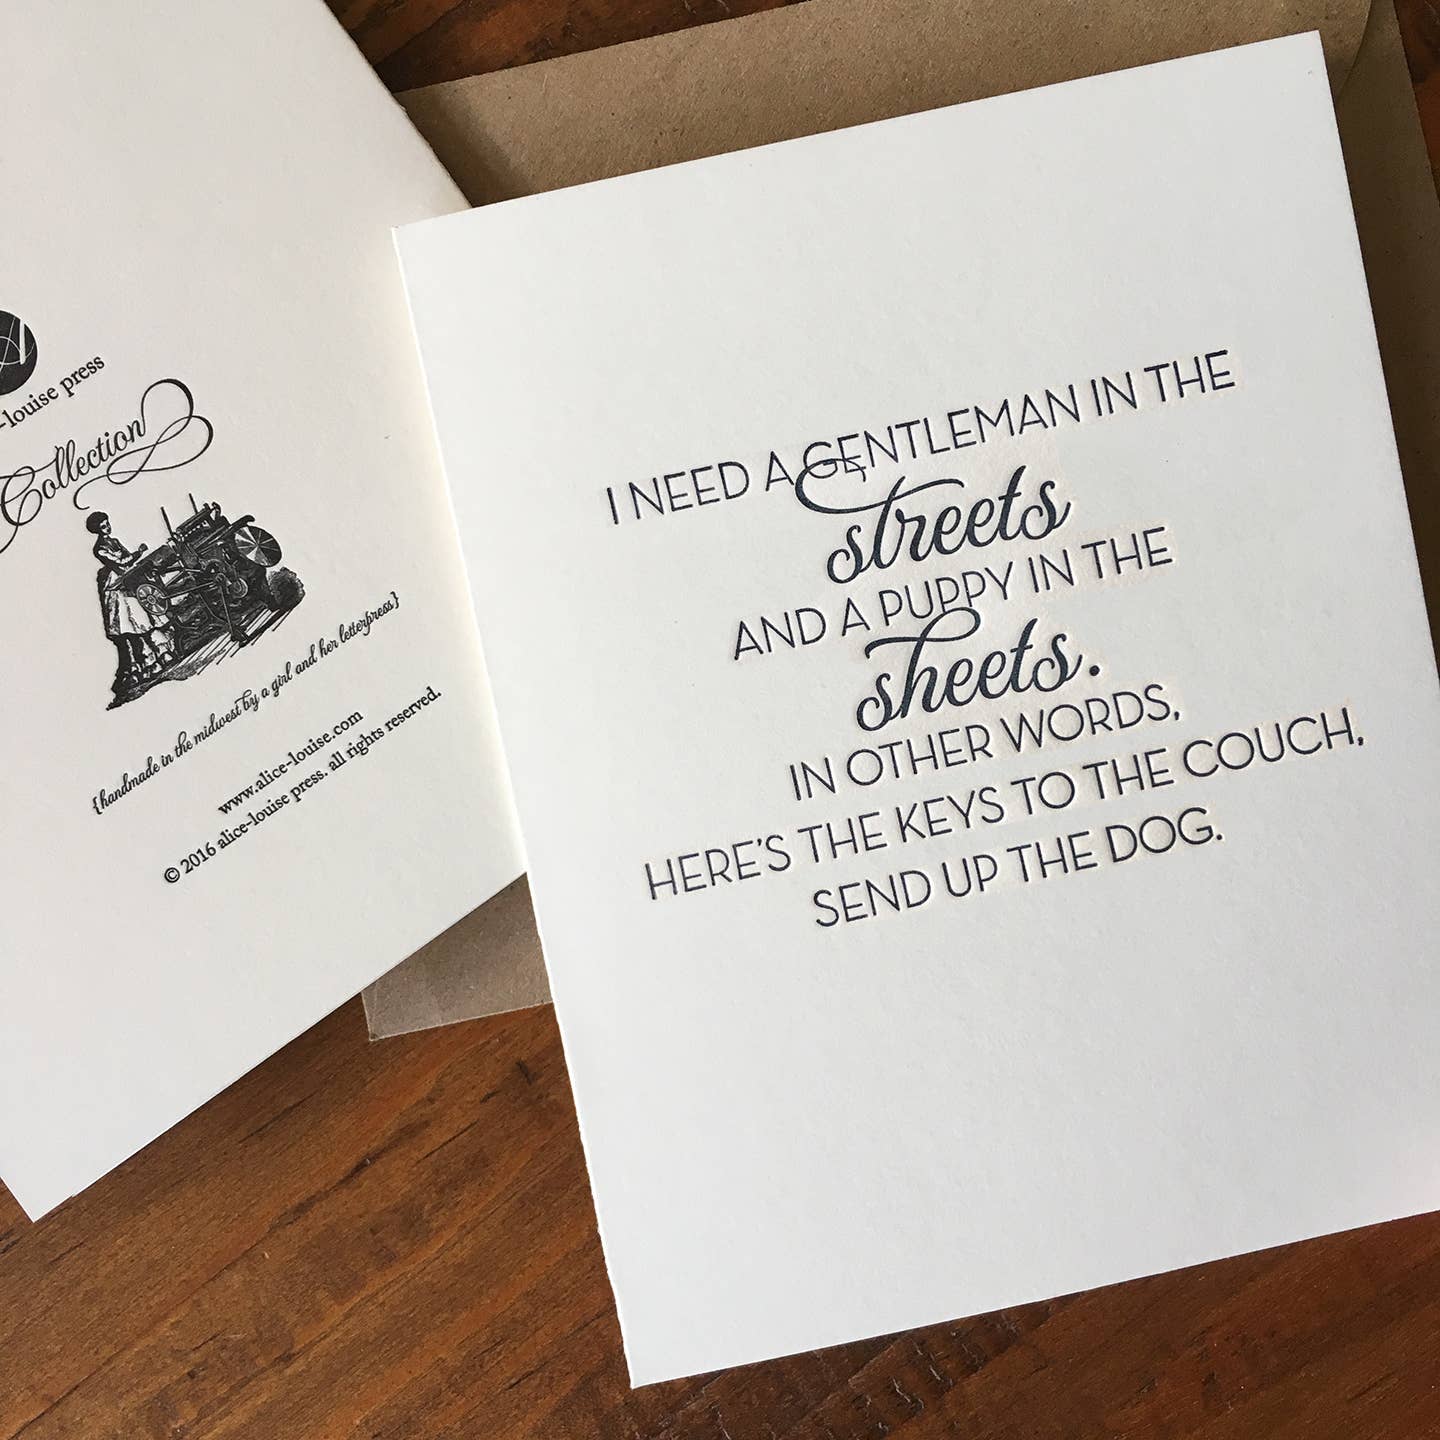 -louise press
Collection
{handmade in the midwest by a girl and her letterpress}
www.alice-louise.com
© 2016 alice-louise press. all rights reserved.
I NEED A GENTLEMAN IN THE
streets
AND A PUPPY IN THE
sheets.
IN OTHER WORDS,
HERE'S THE KEYS TO THE COUCH,
SEND UP THE DOG.